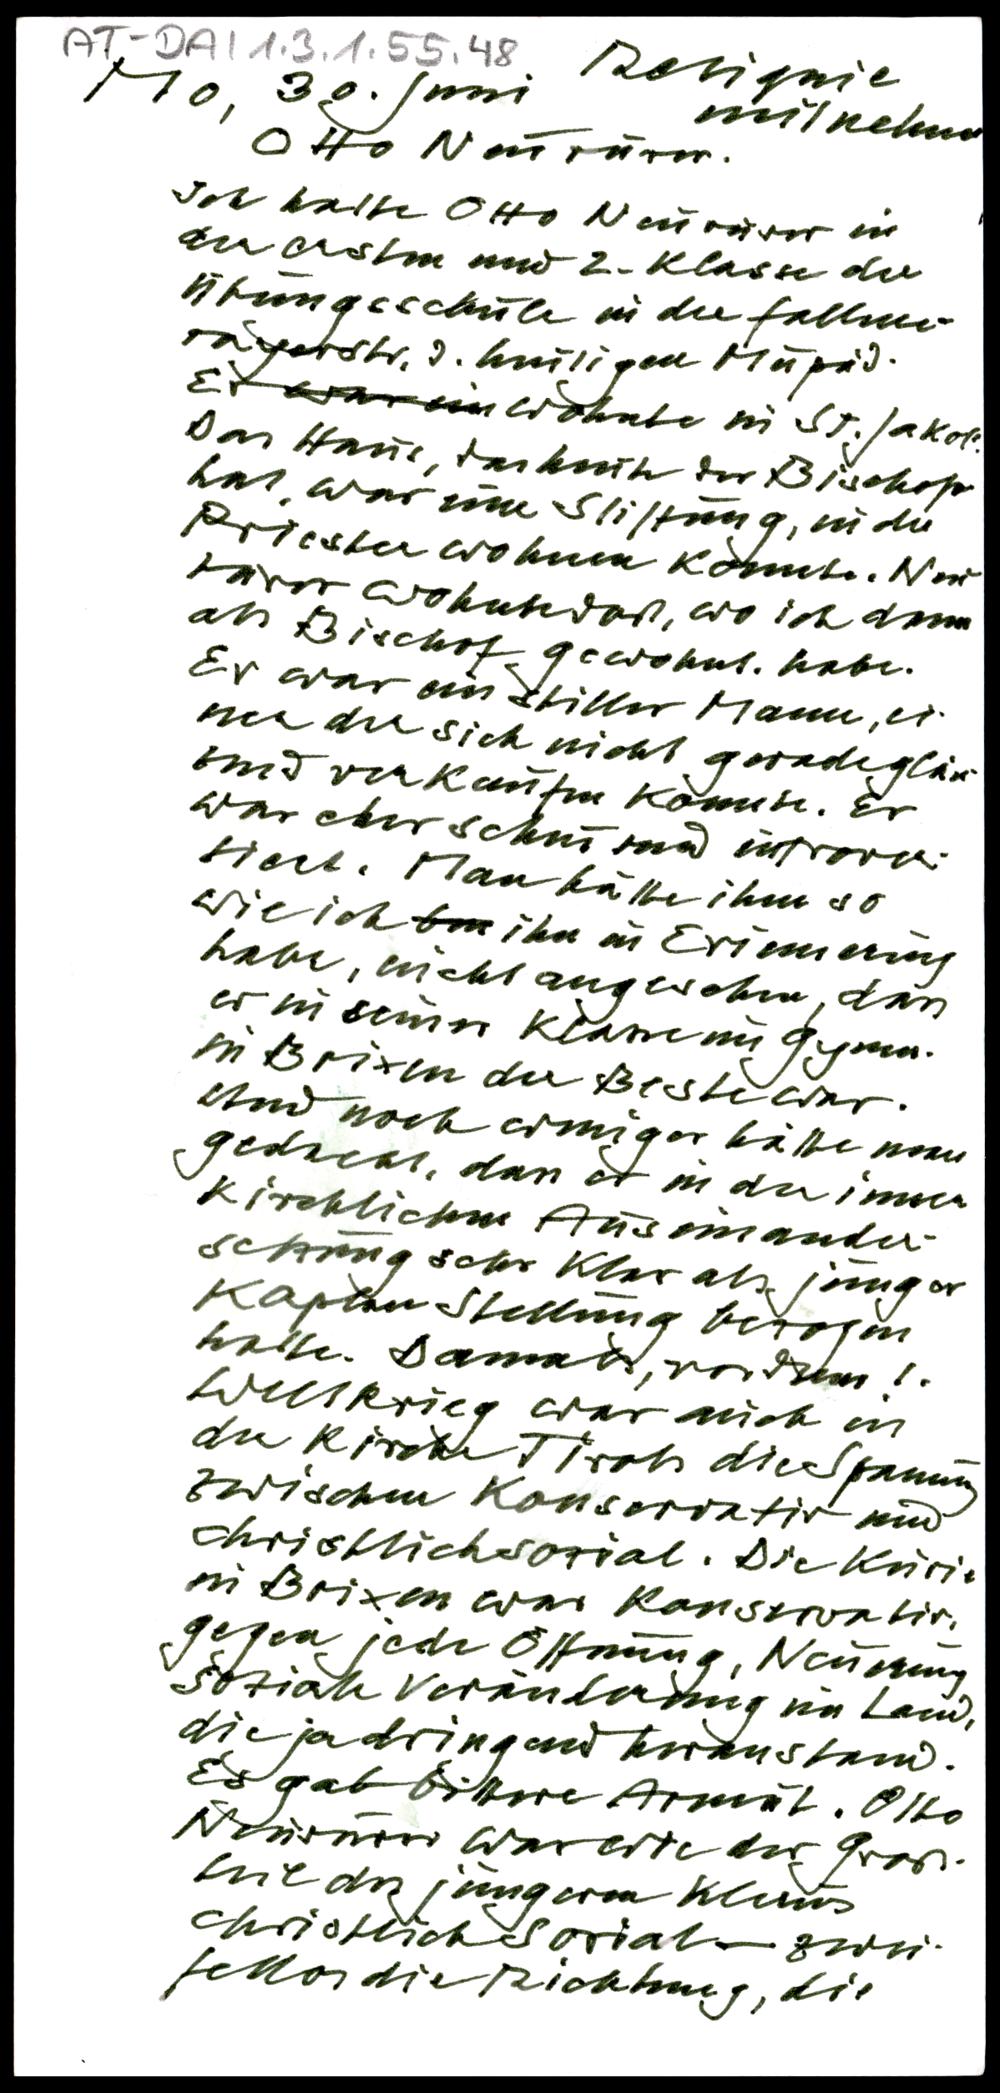 AT-DAI 1.3.1.55.48
Mo, 30. Juni Reliquie
mitnehmen
Otto Neururer.
Ich hatte Otto Neururer in
der ersten und 2. Klasse der
Übungsschule in der Fallme-
rayerstr., d. heutigen Mupäd.
Er war ein wohnte in St. Jakob.
Das Haus, das heute der Bischof
hat, war eine Stiftung, in der
Priester wohnen konnten. Neu
rurer wohnte dort, wo ich dann
als Bischof gewohnt habe.
Er war ein stiller Mann, ei-
ner der sich nicht gerade glän-
zend verkaufen konnte. Er
war eher scheu und introver-
tiert. Man hätte ihm so
wie ich ihn in Erinnerung
habe, nicht angesehen, dass
er in seiner Klasse im Gymn.
in Brixen der Beste war.
Und noch weniger hätte man
gedacht, dass er in der inner
kirchlichen Auseinander-
setzung sehr klar als junger
Kaplan Stellung bezogen
hatte. Damals, vor dem 1.
Weltkrieg war auch in
der Kirche Tirols die Spannung
zwischen Konservativ und
christlichsozial. Die Kurie
in Brixen war konservativ,
gegen jede Öffnung, Neuerung
soziale Veränderung im Land,
die ja dringend heranstand.
Es gab bittere Armut. Otto
Neururer war wie der Gross-
teil des jüngeren Klerus
christlich Sozial — zwei-
fellos die Richtung, die